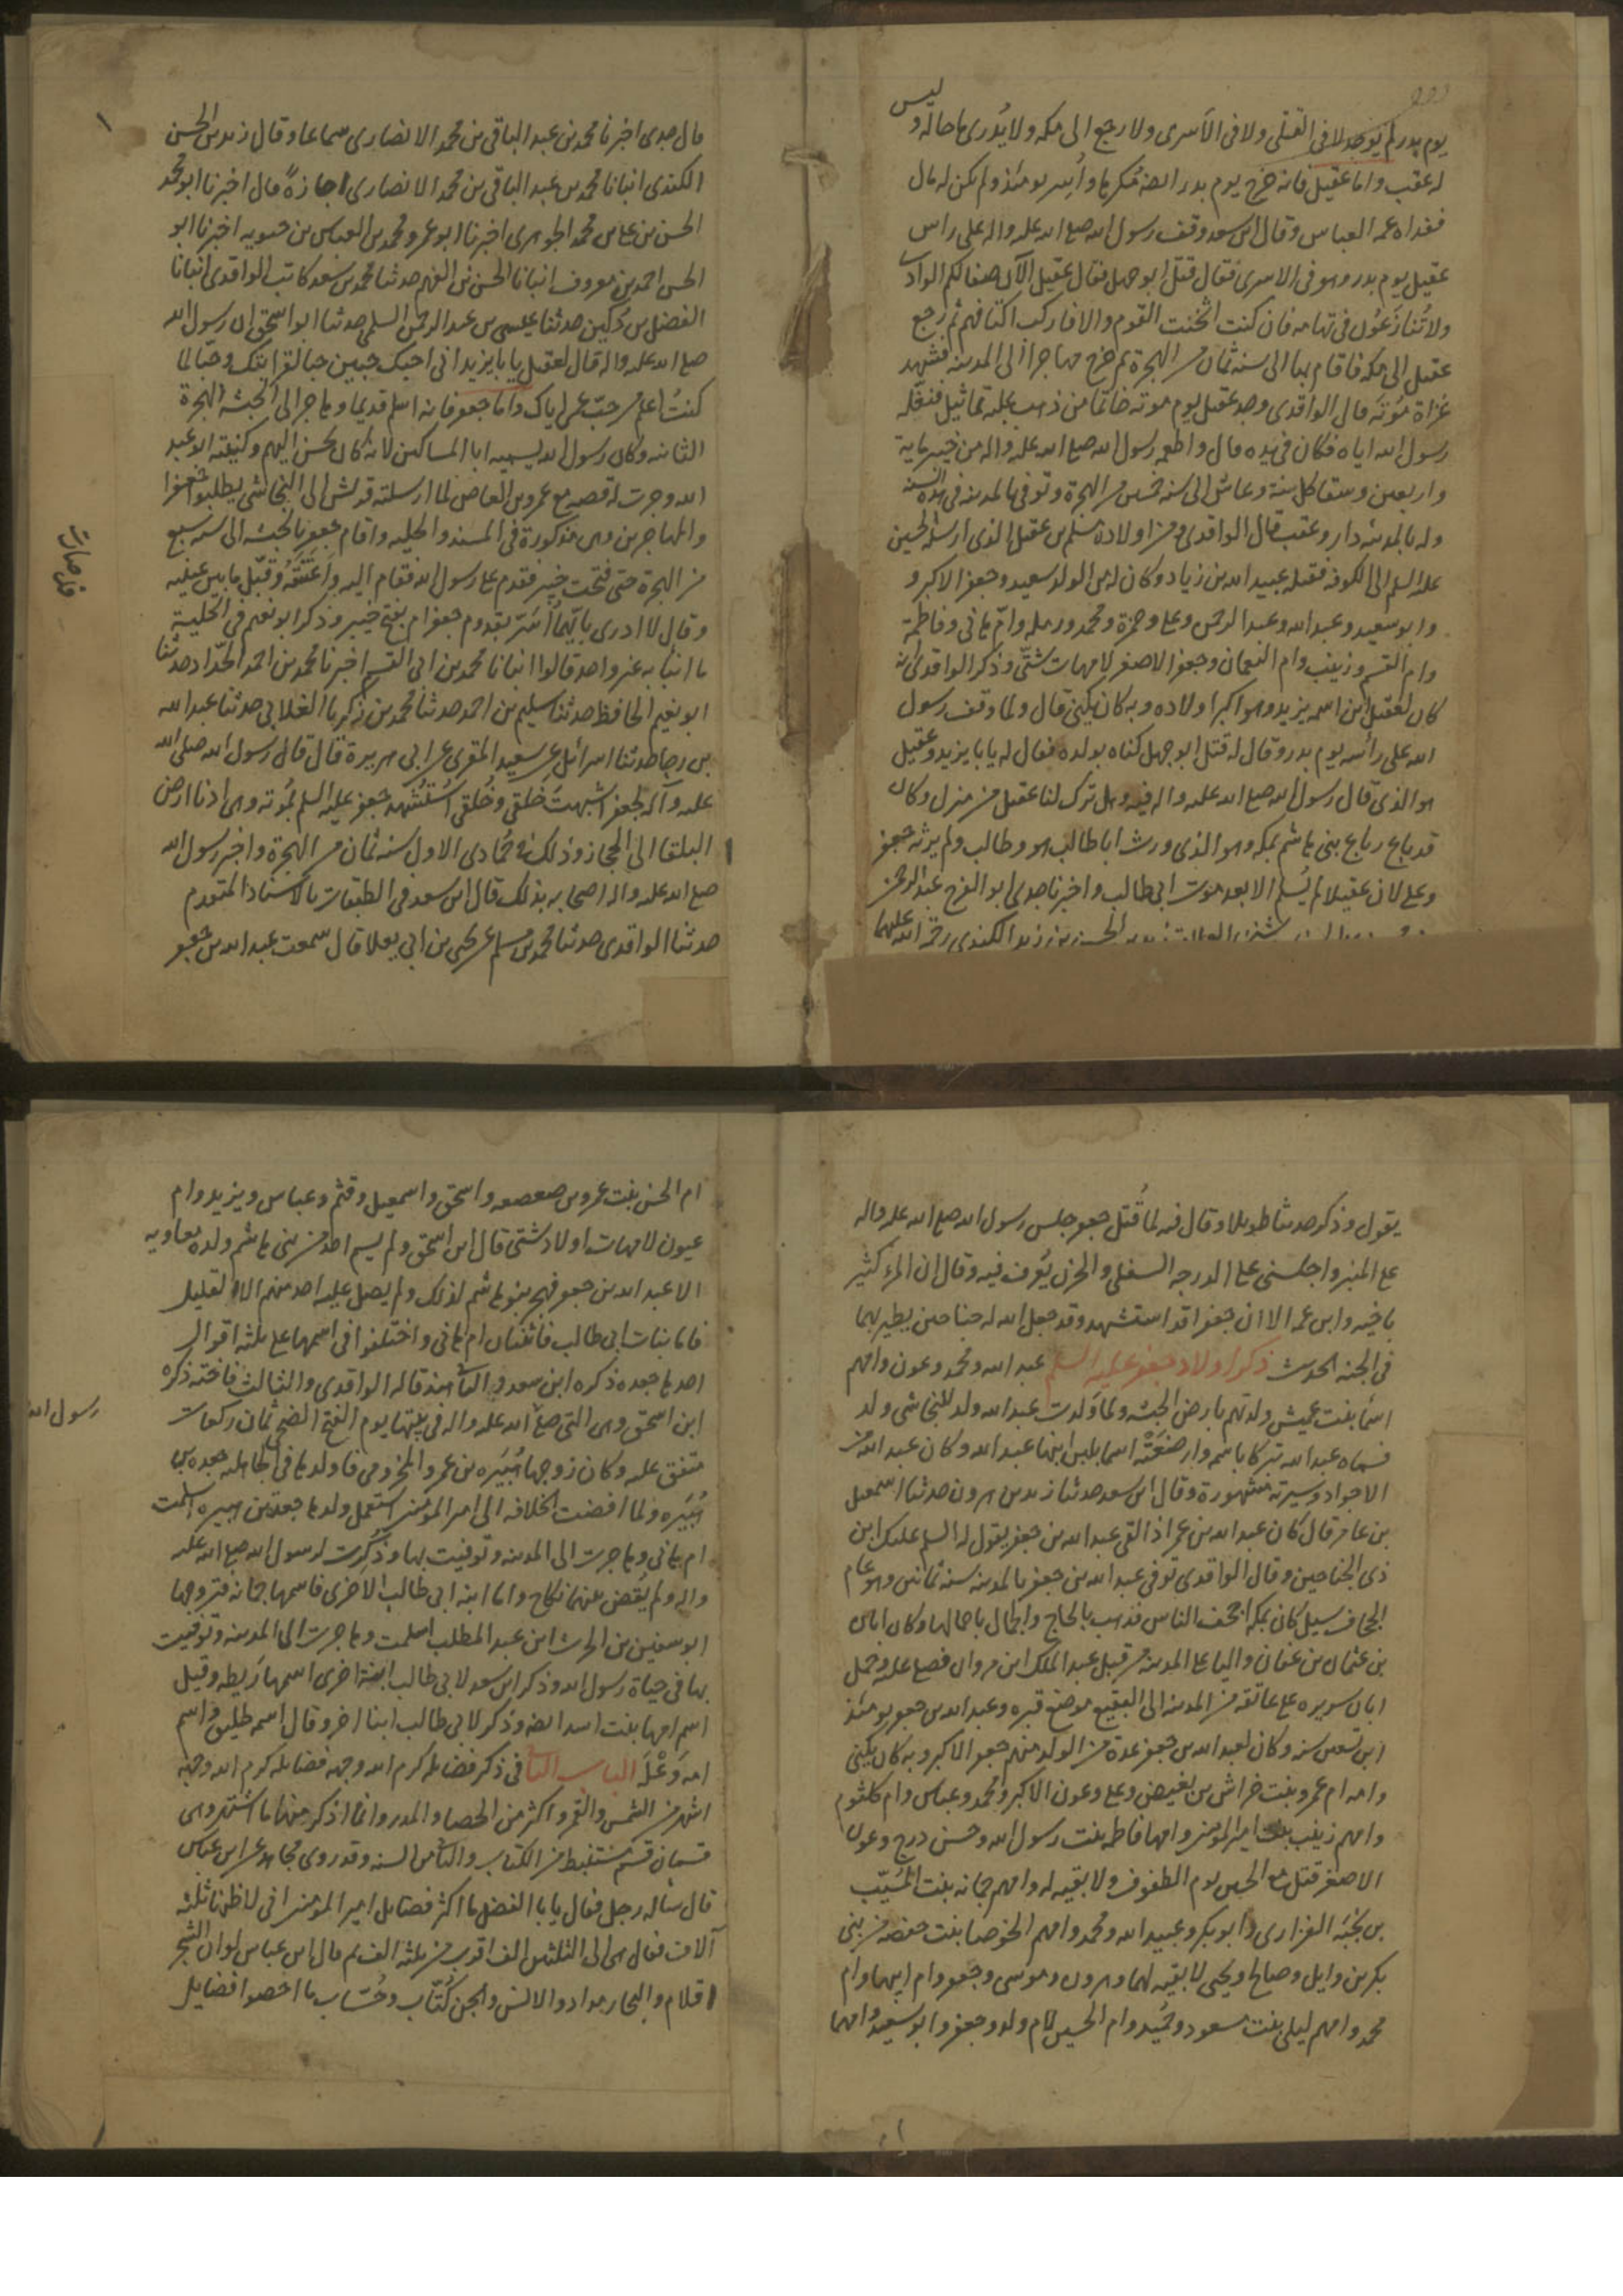 يوم بدر لم يوجد لا في القتلى ولا في الأسرى ولا رجع الى مكه ولا يُدرى ما حاله وليس
له عقب واما عقيل فانه خرج يوم بدر ايضا مكرها وأُسر يومئذ ولم يكن له مال
ففداه عمه العباس وقال ابن سعد وقف رسول الله صلى الله عليه واله على راس
عقيل يوم بدر وهو في الاسرى فقال قتل ابو جهل فقال عقيل الآن صفا لكم الوادى
ولا تُنازَعُون في تهامه فان كنت اثخنت القوم والا فاركب اكتافهم ثم رجع
عقيل الى مكه فاقام بها الى سنه ثمان من الهجرة ثم خرج مهاجرا الى المدينه فشهد
غزاة مؤته قال الواقدى وجد عقيل يوم موته خاتما من ذهب عليه تماثيل فنفّله
رسول الله اياه فكان في يده قال واطعمه رسول الله صلى الله عليه واله من خيبر ماية
واربعين وسقا كل سنة وعاش الى سنه خمسين من الهجرة وتوفي بالمدينه في هذه السنه
وله بالمدينه دار وعقب قال الواقدى ومن اولاده مسلم بن عقيل الذى ارسله الحسين
عليه السلم الى الكوفه فقتله عبيد الله بن زياد وكان له من الولد سعيد وجعفر الاكبر و
وابو سعيد وعبد الله وعبد الرحمن وعلى وحمزة ومحمد ورمله وامّ هانى وفاطمة
وام القسم وزينب وام النعمان وجعفر الاصغر لامهات شتّى وذكر الواقدى انه
كان لعقيل ابن اسمه يزيد وهو اكبر اولاده وبه كان يكنى قال ولما وقف رسول
الله على رأسه يوم بدر وقال له قتل ابو جهل كناه بولده فقال له يا با يزيد وعقيل
هو الذى قال رسول الله صلى الله عليه واله فيه وهل ترك لنا عقيل من منزل وكان
قد باع رباع بنى هاشم بمكه وهو الذى ورث ابا طالب هو وطالب ولم يرثه جعفر
وعلى لان عقيلا لم يُسلم الا بعد موت ابى طالب واخبرنا جدى ابو الفرج عبد الرحمن
الحسن بن زيد الكندى رحمة الله عليهما
قال جدى اخبرنا محمد بن عبد الباقى بن محمد الانصارى سماعا وقال زيد بن الحسن
الكندى انبانا محمد بن عبد الباقى بن محمد الانصارى اجازةً قال اخبرنا ابو محمد
الحسن بن على بن محمد الجوهرى اخبرنا ابو عمرو محمد بن العباس بن حيويه اخبرنا ابو
الحسن احمد بن معروف انبانا الحسن بن الفهم حدثنا محمد بن سعد كاتب الواقدى انبانا
الفضل بن دُكين حدثنا عيسى بن عبد الرحمن السلمى حدثنا ابو اسحق ان رسول الله
صلى الله عليه واله قال لعقيل يا با يزيد انى احبك حبين حبا لقرابتك وحبا لما
كنتُ اعلم من حبّ عمى اياك واما جعفر فانه اسلم قديما وهاجر الى الحبشه الهجرة
الثانيه وكان رسول الله يسميه ابا المساكين لانه كان يحسن اليهم وكنيته ابو عبد
الله وجرت له قصه مع عمرو بن العاص لما ارسلته قريش الى النجاشى يطلبوا جعفرا
والمهاجرين وهى مذكورة في المسند والحليه واقام جعفر بالحبشه الى سنه سبع
من الهجرة حتى فتحت خيبر فقدم على رسول الله فقام اليه واعتنقه وقبّل ما بين عينيه
وقال لا ادرى بايّهما أُسَرّ بقدوم جعفر ام بفتح خيبر وذكر ابو نعيم في الحلية
ما انبانا به غير واحد قالوا انبانا محمد بن ابى القسم اخبرنا محمد بن احمد الحدّاد حدثنا
ابو نعيم الحافظ حدثنا سليم بن احمد حدثنا محمد بن زكريا الغلابى حدثنا عبد الله
بن رجا حدثنا اسرائل عن سعيد المقرى عن ابى هريرة قال قال رسول الله صلى الله
عليه وآله لجعفر اشبهتَ خَلقى وخُلقى استُشهد جعفر عليه السلم بمُوته وهى ادنا ارض
البلقا الى الحجاز وذلك في جُمادى الاول سنه ثمان من الهجرة واخبر رسول الله
صلى الله عليه واله اصحابه بذلك قال ابن سعد في الطبقات بالاسناد المتقدم
حدثنا الواقدى حدثنا محمد بن مسلم عن يحيى بن ابى يعلا قال سمعت عبد الله بن جعفر
يقول وذكر حديثا طويلا وقال فيه لما قُتل جعفر جلس رسول الله صلى الله عليه واله
على المنبر واجلسنى على الدرجه السفلى والحزن يُعرف فيه وقال ان المرء كثير
باخيه وابن عمه الا ان جعفرا قد استشهد وقد جعل الله له جناحين يطير بهما
في الجنه الحديث ذكر اولاد جعفر عليه السلم عبد الله ومحمد وعون وامهم
اسما بنت عميش ولدتهم بارض الحبشه ولما وَلدت عبد الله ولد للنجاشى ولد
فسماه عبد الله تبركا باسمه وارضعَتْه اسما بلبن ابنها عبد الله وكان عبد الله من
الاجواد وسيرته مشهورة وقال ابن سعد حدثنا زيد بن هرون حدثنا اسمعيل
بن عامر قال كان عبد الله بن عمر اذا لقى عبد الله بن جعفر يقول له السلم عليك ابن
ذى الجناحين وقال الواقدى توفى عبد الله بن جعفر بالمدينه سنه ثمانين وهو عام
الجحاف سيل كان بمكه اجحف الناس فذهب بالحاج والجمال باحمالها وكان ابان
بن عثمان بن عفان واليا على المدينه من قبل عبد الملك ابن مروان فصلى عليه وحمل
ابان سريره على عاتقه من المدينه الى البقيع موضع قبره وعبد الله بن جعفر يومئذ
ابن تسعين سنه وكان لعبد الله بن جعفر عدة من الولد منهم جعفر الاكبر وبه كان يكنى
وامه ام عمرو بنت خراش بن بغيض وعلى وعون الاكبر ومحمد وعباس وام كلثوم
وامهم زينب بنت امير المومنين وامها فاطمه بنت رسول الله وحسن درج وعون
الاصغر قتل مع الحسين يوم الطفوف ولا بقيه له وامهم جمانه بنت المُسيّب
بن نَجَبَه الفزارى وابو بكر وعبيد الله ومحمد وامهم الخوصا بنت حفصه من بنى
بكر بن وايل وصالح ويحيى لا بقيه لهما وهرون وموسى وجعفر وام ابيها وام
محمد وامهم ليلى بنت مسعود وحُميد وام الحسين لام ولد وجعفر وابو سعيد وامهما
ام الحسن بنت عمرو بن صعصعه واسحق واسمعيل وقثم وعباس ويزيد وام
عيون لامهات اولاد شتى قال ابن اسحق ولم يسم احد من بنى هاشم ولده معاويه
الا عبد الله بن جعفر فهجره بنو هاشم لذلك ولم يصل عليه احد منهم الا القليل
فاما بنات ابى طالب فاثنتان ام هانى واختلفوا في اسمها على ثلثة اقوال
احدها جعده ذكره ابن سعد والثانى هند قاله الواقدى والثالث فاخته ذكره
ابن اسحق وهى التى صلى الله عليه واله في بيتها يوم الفتح الضحى ثمان ركعات
رسول الله
متفق عليه وكان زوجها هُبَيره بن عمرو المخزومى فاولدها في الجاهليه جعده بن
هُبَيره ولما افضت الخلافه الى امير المومنين استعمل ولدها جعدة بن هبيره اسلمت
ام هانى وهاجرت الى المدينه وتوفيت بها وذُكِرت لرسول الله صلى الله عليه
واله ولم يُقض بينهما نكاح واما ابنه ابى طالب الاخرى فاسمها جمانه فتزوجها
ابو سفين بن الحرث ابن عبد المطلب اسلمت وهاجرت الى المدينه وتوفيت
بها في حياة رسول الله وذكر ابن سعد لابى طالب ابنة اخرى اسمها رَيطه وقيل
اسم امها بنت اسد ايضه وذكر لابى طالب ابنا اخر وقال اسمه طليق واسم
امه وَعْلَه الباب الثانى في ذكر فضايله كرم الله وجهه فضايله كرم الله وجهه
اشهر من الشمس والقمر واكثر من الحصا والمدر وانما اذكر منها ما اشتهر وهى
قسمان قسم مستنبط من الكتاب والثانى السنه وقد روى مجاهد عن ابن عباس
قال ساله رجل فقال يا با الفضل ما اكثر فضايل امير المومنين انى لاظنها ثلثه
آلاف فقال هى الى الثلثين الف اقرب من ثلثه الف ثم قال ابن عباس لو ان الشجر
اقلام والبحار مداد والانس والجن كُتّاب وحُسّاب ما احصوا فضايل